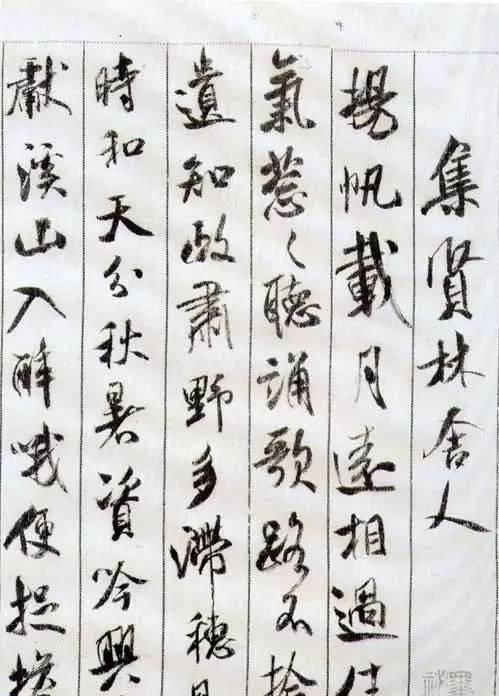 集賢林舍人
揚帆載月遠相過佳
氣葱〻聽誦歌路不拾
遺知政肅野多滯穗是
時和天分秋暑資吟興
獻溪山入醉哦便捉蟾